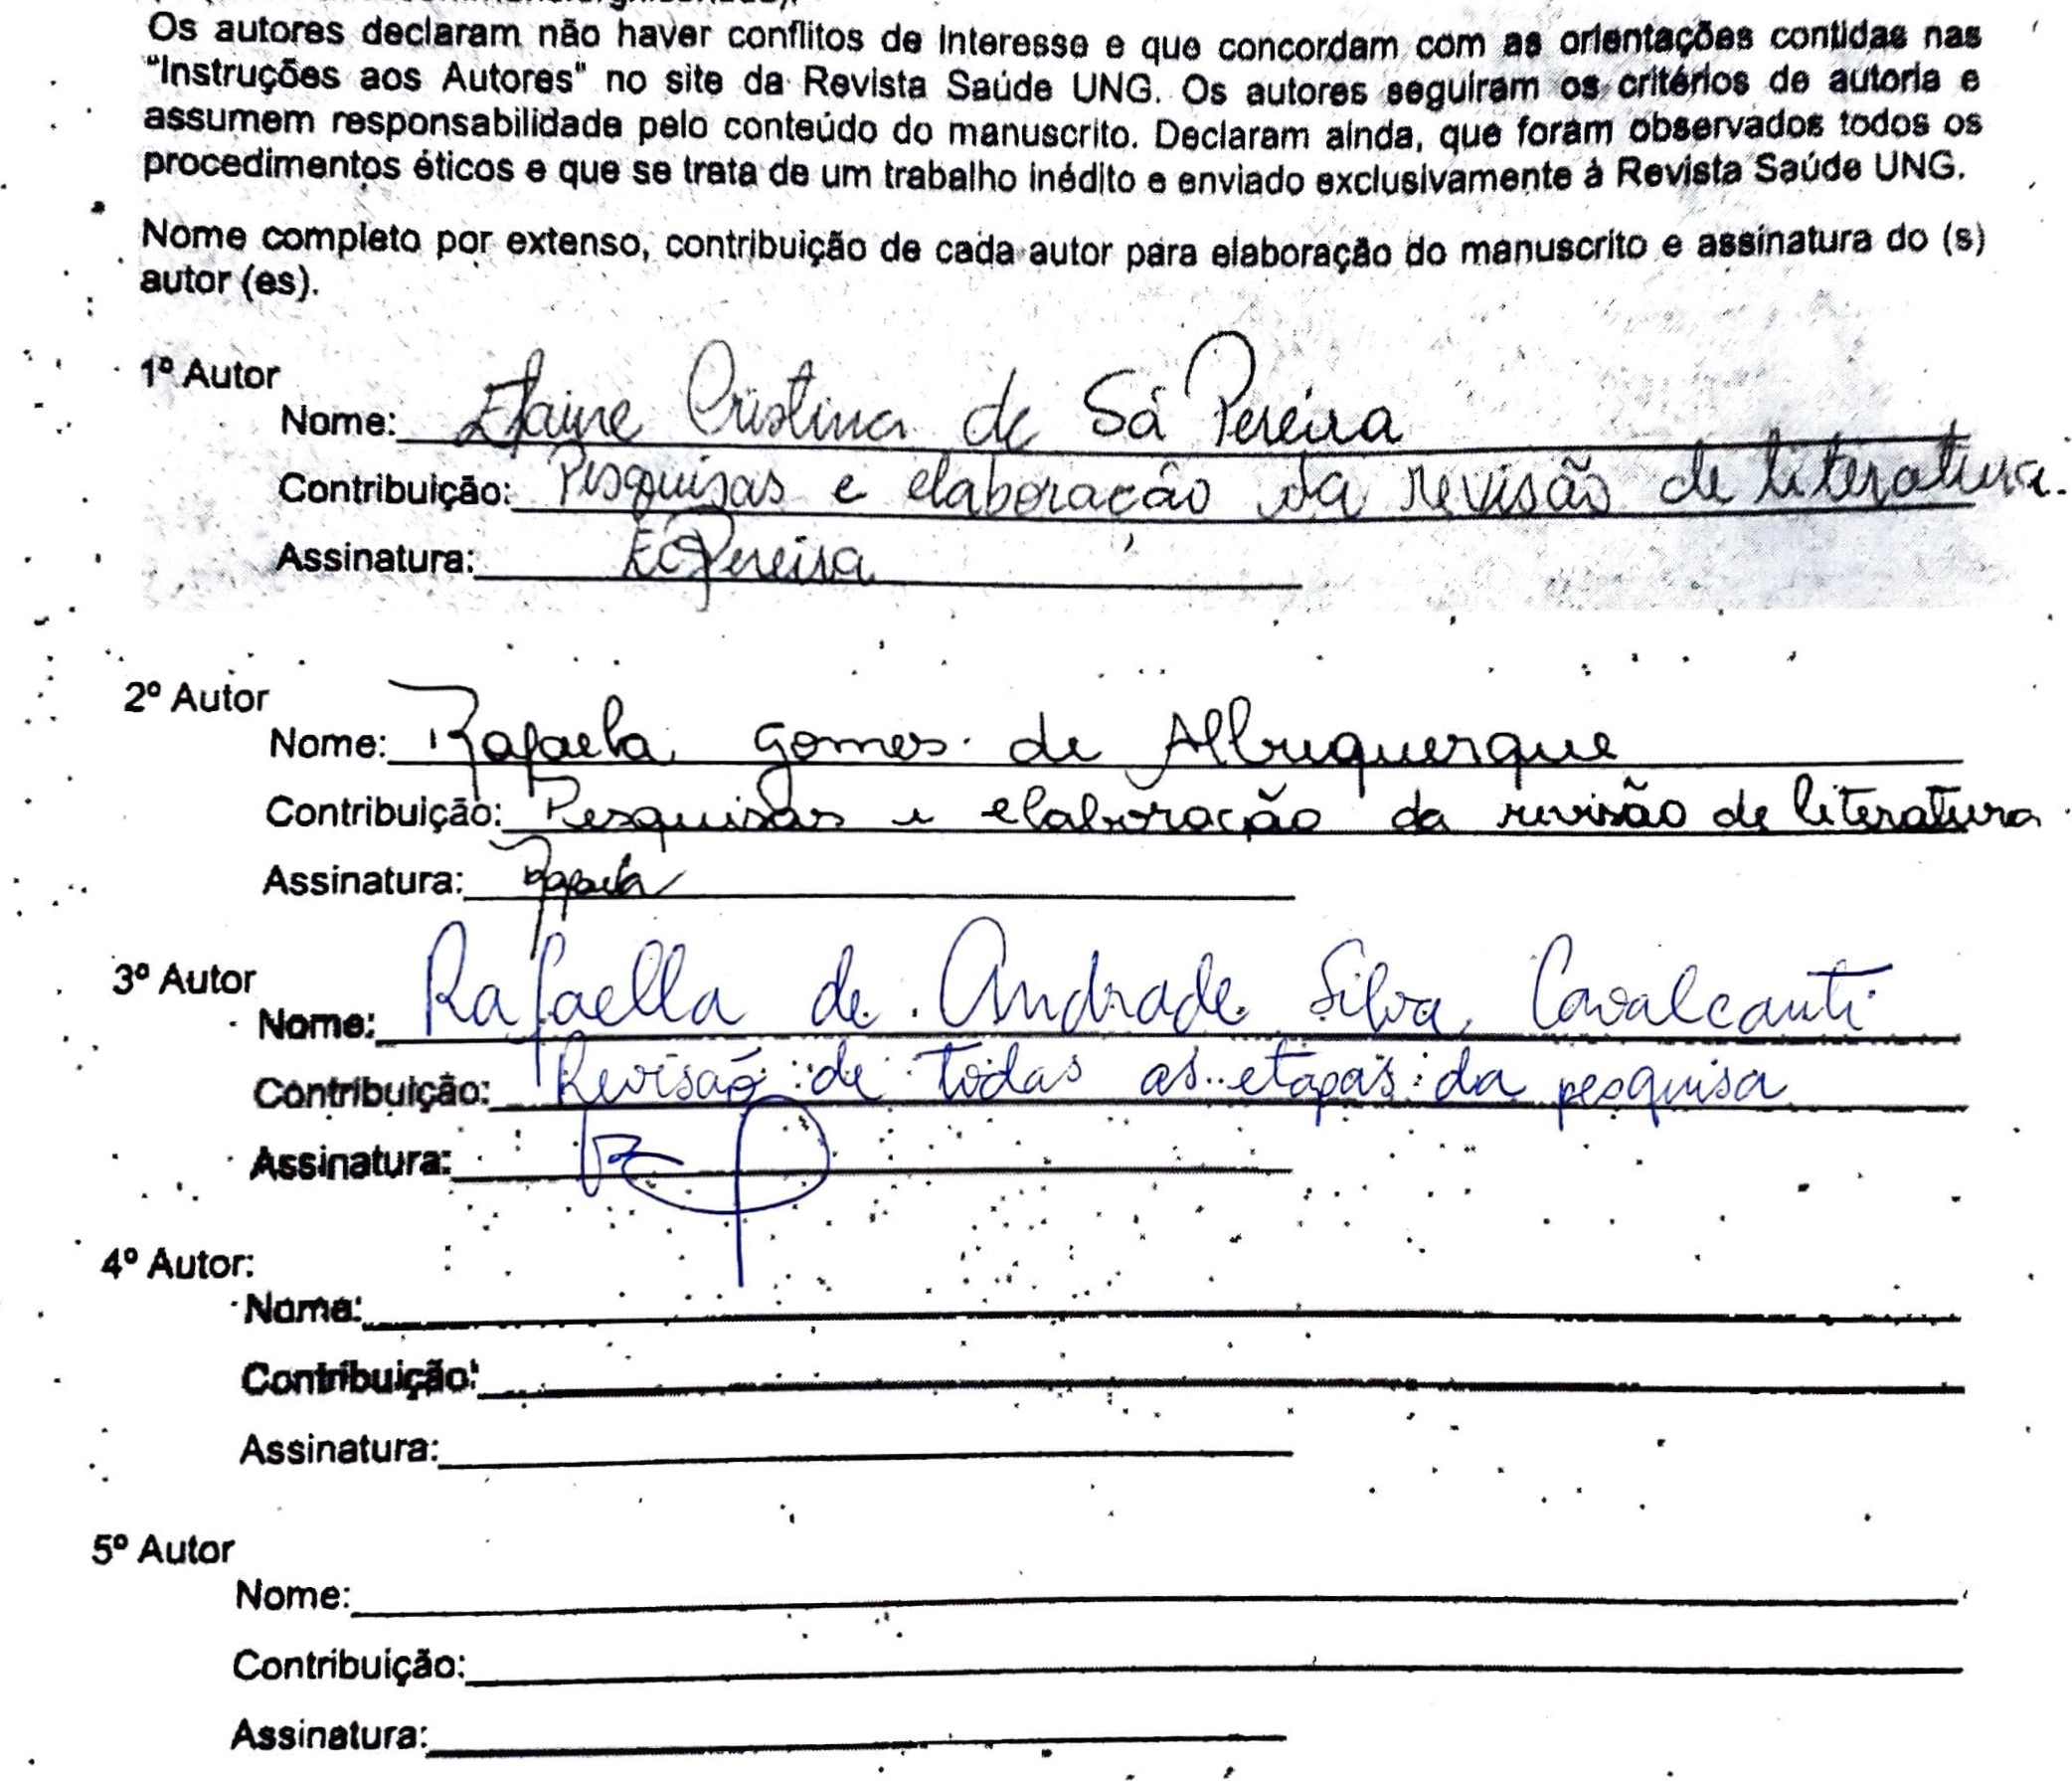 Os autores declaram não haver conflitos de interesse e que concordam com as orientações contidas nas
"Instruções aos Autores" no site da Revista Saúde UNG. Os autores seguiram os critérios de autoria e
assumem responsabilidade pelo conteúdo do manuscrito. Declaram ainda, que foram observados todos os
procedimentos éticos e que se trata de um trabalho inédito e enviado exclusivamente à Revista Saúde UNG.
Nome completo por extenso, contribuição de cada autor para elaboração do manuscrito e assinatura do (s)
autor (es).
1º Autor
Nome: Elaine Cristina de Sá Pereira
Contribuição: Pesquisas e elaboração da revisão de literatura.
Assinatura: ECSPereira
2º Autor
Nome: Rafaela Gomes de Albuquerque
Contribuição: Pesquisas e elaboração da revisão de literatura
Assinatura: Rafaela
3º Autor
Nome: Rafaella de Andrade Silva Cavalcanti
Contribuição: Revisão de todas as etapas da pesquisa
Assinatura:
4º Autor:
Nome:
Contribuição:
Assinatura:
5º Autor
Nome:
Contribuição:
Assinatura: